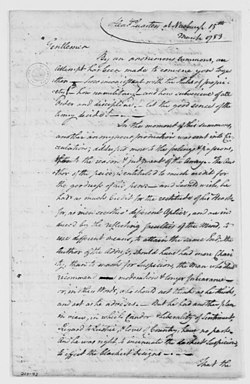 Head Quarters Newburgh 15th
March 1783
Gentlemen
By an anonymous summons, an
attempt has been made to convene you toge
ther — how inconsistent with the rules of propri
ety! how unmilitary! and how subversive of all
order and discipline — let the good sense of the
army decide.
In the moment of this summons,
another anonymous production was sent into
circulation, addressed more to the feelings & passions,
than to the reason & judgment of the army. The au
thor of the piece, is entitled to much credit for
the goodness of his pen: and I could wish he
had as much credit for the rectitude of his Heart
for, as men see thro' different Optics, and are in
duced by the reflecting faculties of the Mind, to
use different means to attain the same end: the
author of the address, should have had more Chari
ty, than to
recommend moderation & longer forbearance
or, in other words, who should not think as he thinks
and act as he advises. But he had another plan
in view, in which Candor & liberality of Sentiment
Regard to Justice, & love of Country, have no part;
and he was right to insinuate the darkest suspicion
to effect the blackest designs.
That the